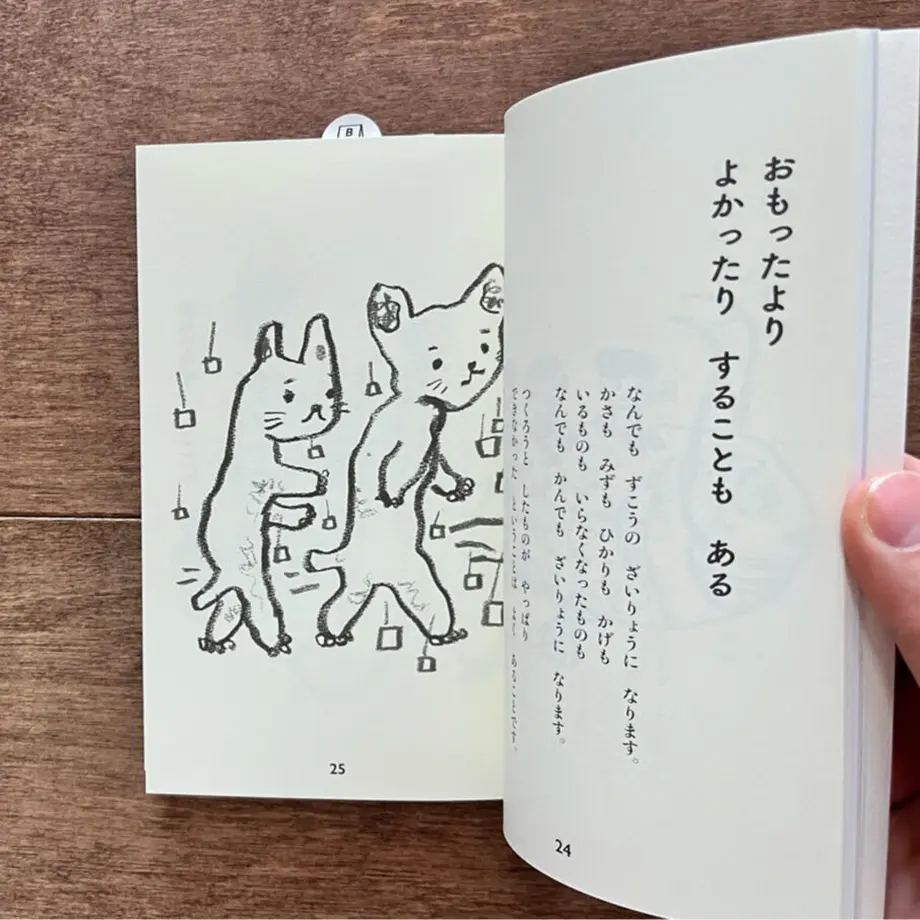 おもったより
よかったり　することも　ある
なんでも　ずこうの　ざいりょうに　なります。
かさも　みずも　ひかりも　かげも
いるものも　いらなくなったものも
なんでも　かんでも　ざいりょうに　なります。
つくろうと　したものが　やっぱり
できなかった　ということは　よく　あることです。
24
25
B